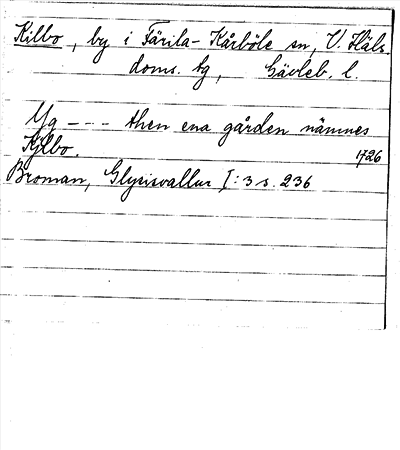 Kilbo, by i Färila-Kårböle sn, V. Häls.
doms. tg, Gävleb. l.
Yg --- then ena gården nämnes
Kjlbo. 1726
Broman, Glysisvallur I:3 s. 236